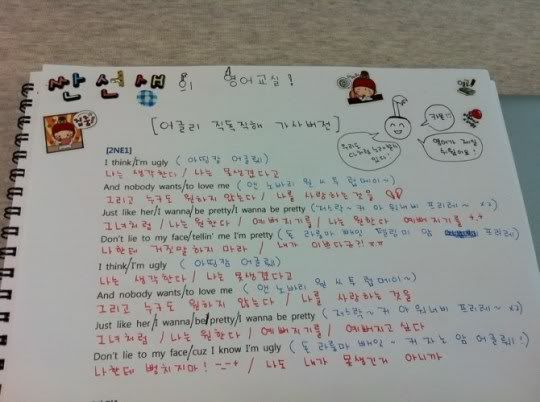 산 선생의 영어교실!
[어글리 직독직해 가사버전]
[2NE1]
I think/I'm ugly (아띵캄 어글뤼)
나는 생각한다 / 나는 못생겼다고
And nobody wants/to love me (앤 노바리 원 씨 투 럽메이~)
그리고 누구도 원하지 않는다 / 나를 사랑하는 것을
Just like her/I wanna/be pretty/I wanna be pretty
그녀처럼 / 나는 원한다 / 예뻐지기를 / 나는 원한다 예뻐지기를
Don't lie to my face/tellin' me I'm pretty
나한테 거짓말 하지 마라 / 내가 이쁘다구?! ㅠㅠ
I think/I'm ugly (아띵캄 어글뤼)
나는 생각한다 / 나는 못생겼다고
And nobody wants/to love me (앤 노바리 원 씨 투 럽메이~)
그리고 누구도 원하지 않는다 / 나를 사랑하는 것을
Just like her/I wanna/be/pretty/I wanna be pretty
그녀처럼 / 나는 원한다 / 예뻐지기를 / 예뻐지고 싶다
Don't lie to my face/cuz I know I'm ugly
나한테 뻥치지마! / 나도 내가 못생긴거 아니까